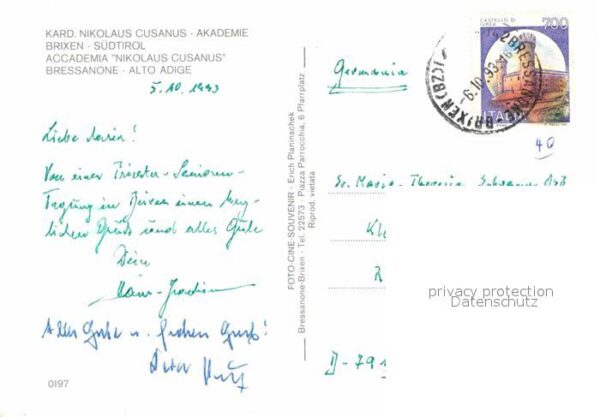 KARD. NIKOLAUS CUSANUS · AKADEMIE
BRIXEN · SÜDTIROL
ACCADEMIA "NIKOLAUS CUSANUS"
BRESSANONE · ALTO ADIGE
5.10.1993
Liebe Maria!
Von einer Priester-Senioren-
Tagung in Brixen einen herz-
lichen Gruß und alles Gute
Dein
Hans-Joachim
Alles Gute u. frohen Gruß!
0197
FOTO-CINE-SOUVENIR · Erich Planinschek
Bressanone-Brixen · Tel. 22573 · Piazza Parrocchia, 6 Pfarrplatz
Riprod. vietata
Germania
CASTELLO DI
700
ITALIA
BRESSANONE
BRIXEN (BZ)
40
Sr. Maria-Theresia
D-79
privacy protection
Datenschutz